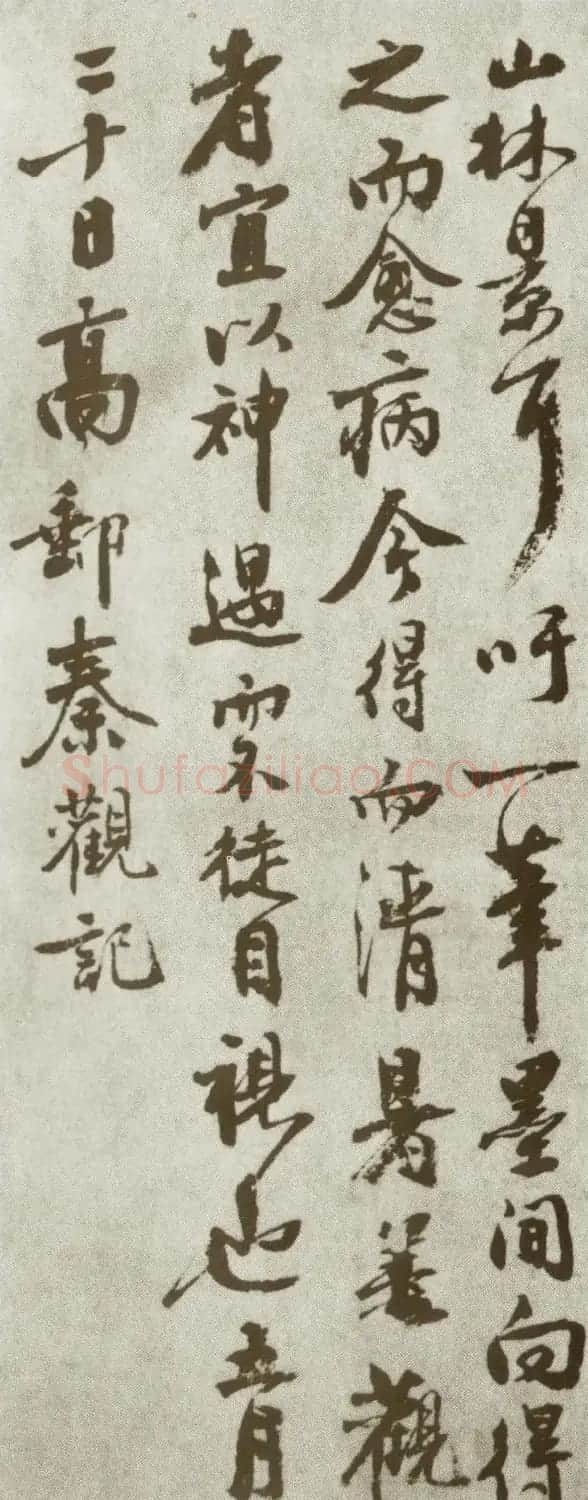 山林景耳吁一筆墨間向得
之而愈病今得而清暑善觀
者宜以神遇而不徒目視也五月
二十日高郵秦觀記
Shufaziliao.COM